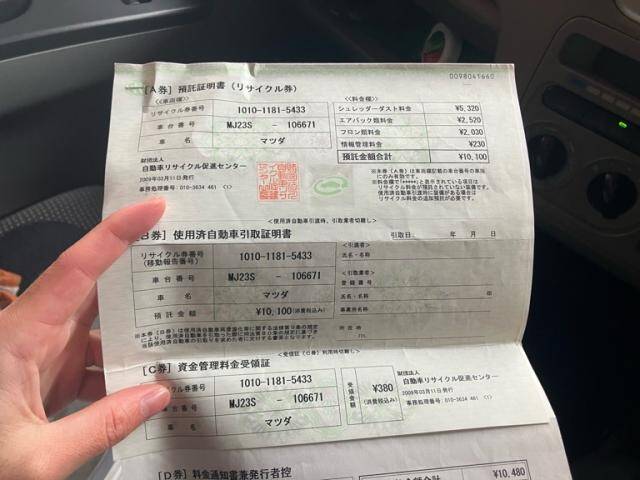 0098041660
[A券] 預託証明書(リサイクル券)
<車両欄>
リサイクル券番号 1010-1181-5433
車台番号 MJ23S - 106671
車名 マツダ
<料金欄>
シュレッダーダスト料金 ¥5,320
エアバッグ類料金 ¥2,520
フロン類料金 ¥2,030
情報管理料金 ¥230
預託金額合計 ¥10,100
財団法人
自動車リサイクル促進センター
2009年03月11日発行
事務処理番号:010-3634 461 <1>
※本券(A券)は車両欄記載の車台番号の車両
にのみ有効です。
<使用済自動車引渡時、引取業者切離し>
[B券] 使用済自動車引取証明書
引取日: 年 月 日
リサイクル券番号
(移動報告番号) 1010-1181-5433
車台番号 MJ23S - 106671
車名 マツダ
預託金額 ¥10,100(消費税込み)
<引渡者>
氏名・名称
<引取業者>
登録番号
氏名・名称 印
事業所名
所在地
TEL
<受領証(C券)利用時切離し>
[C券] 資金管理料金受領証
リサイクル券番号 1010-1181-5433
車台番号 MJ23S - 106671
車名 マツダ
受領金額 ¥380
(消費税込み)
財団法人
自動車リサイクル促進センター
2009年03月11日発行
事務処理番号:010-3634 461 <1>
[D券] 料金通知書兼発行者控
¥10,480